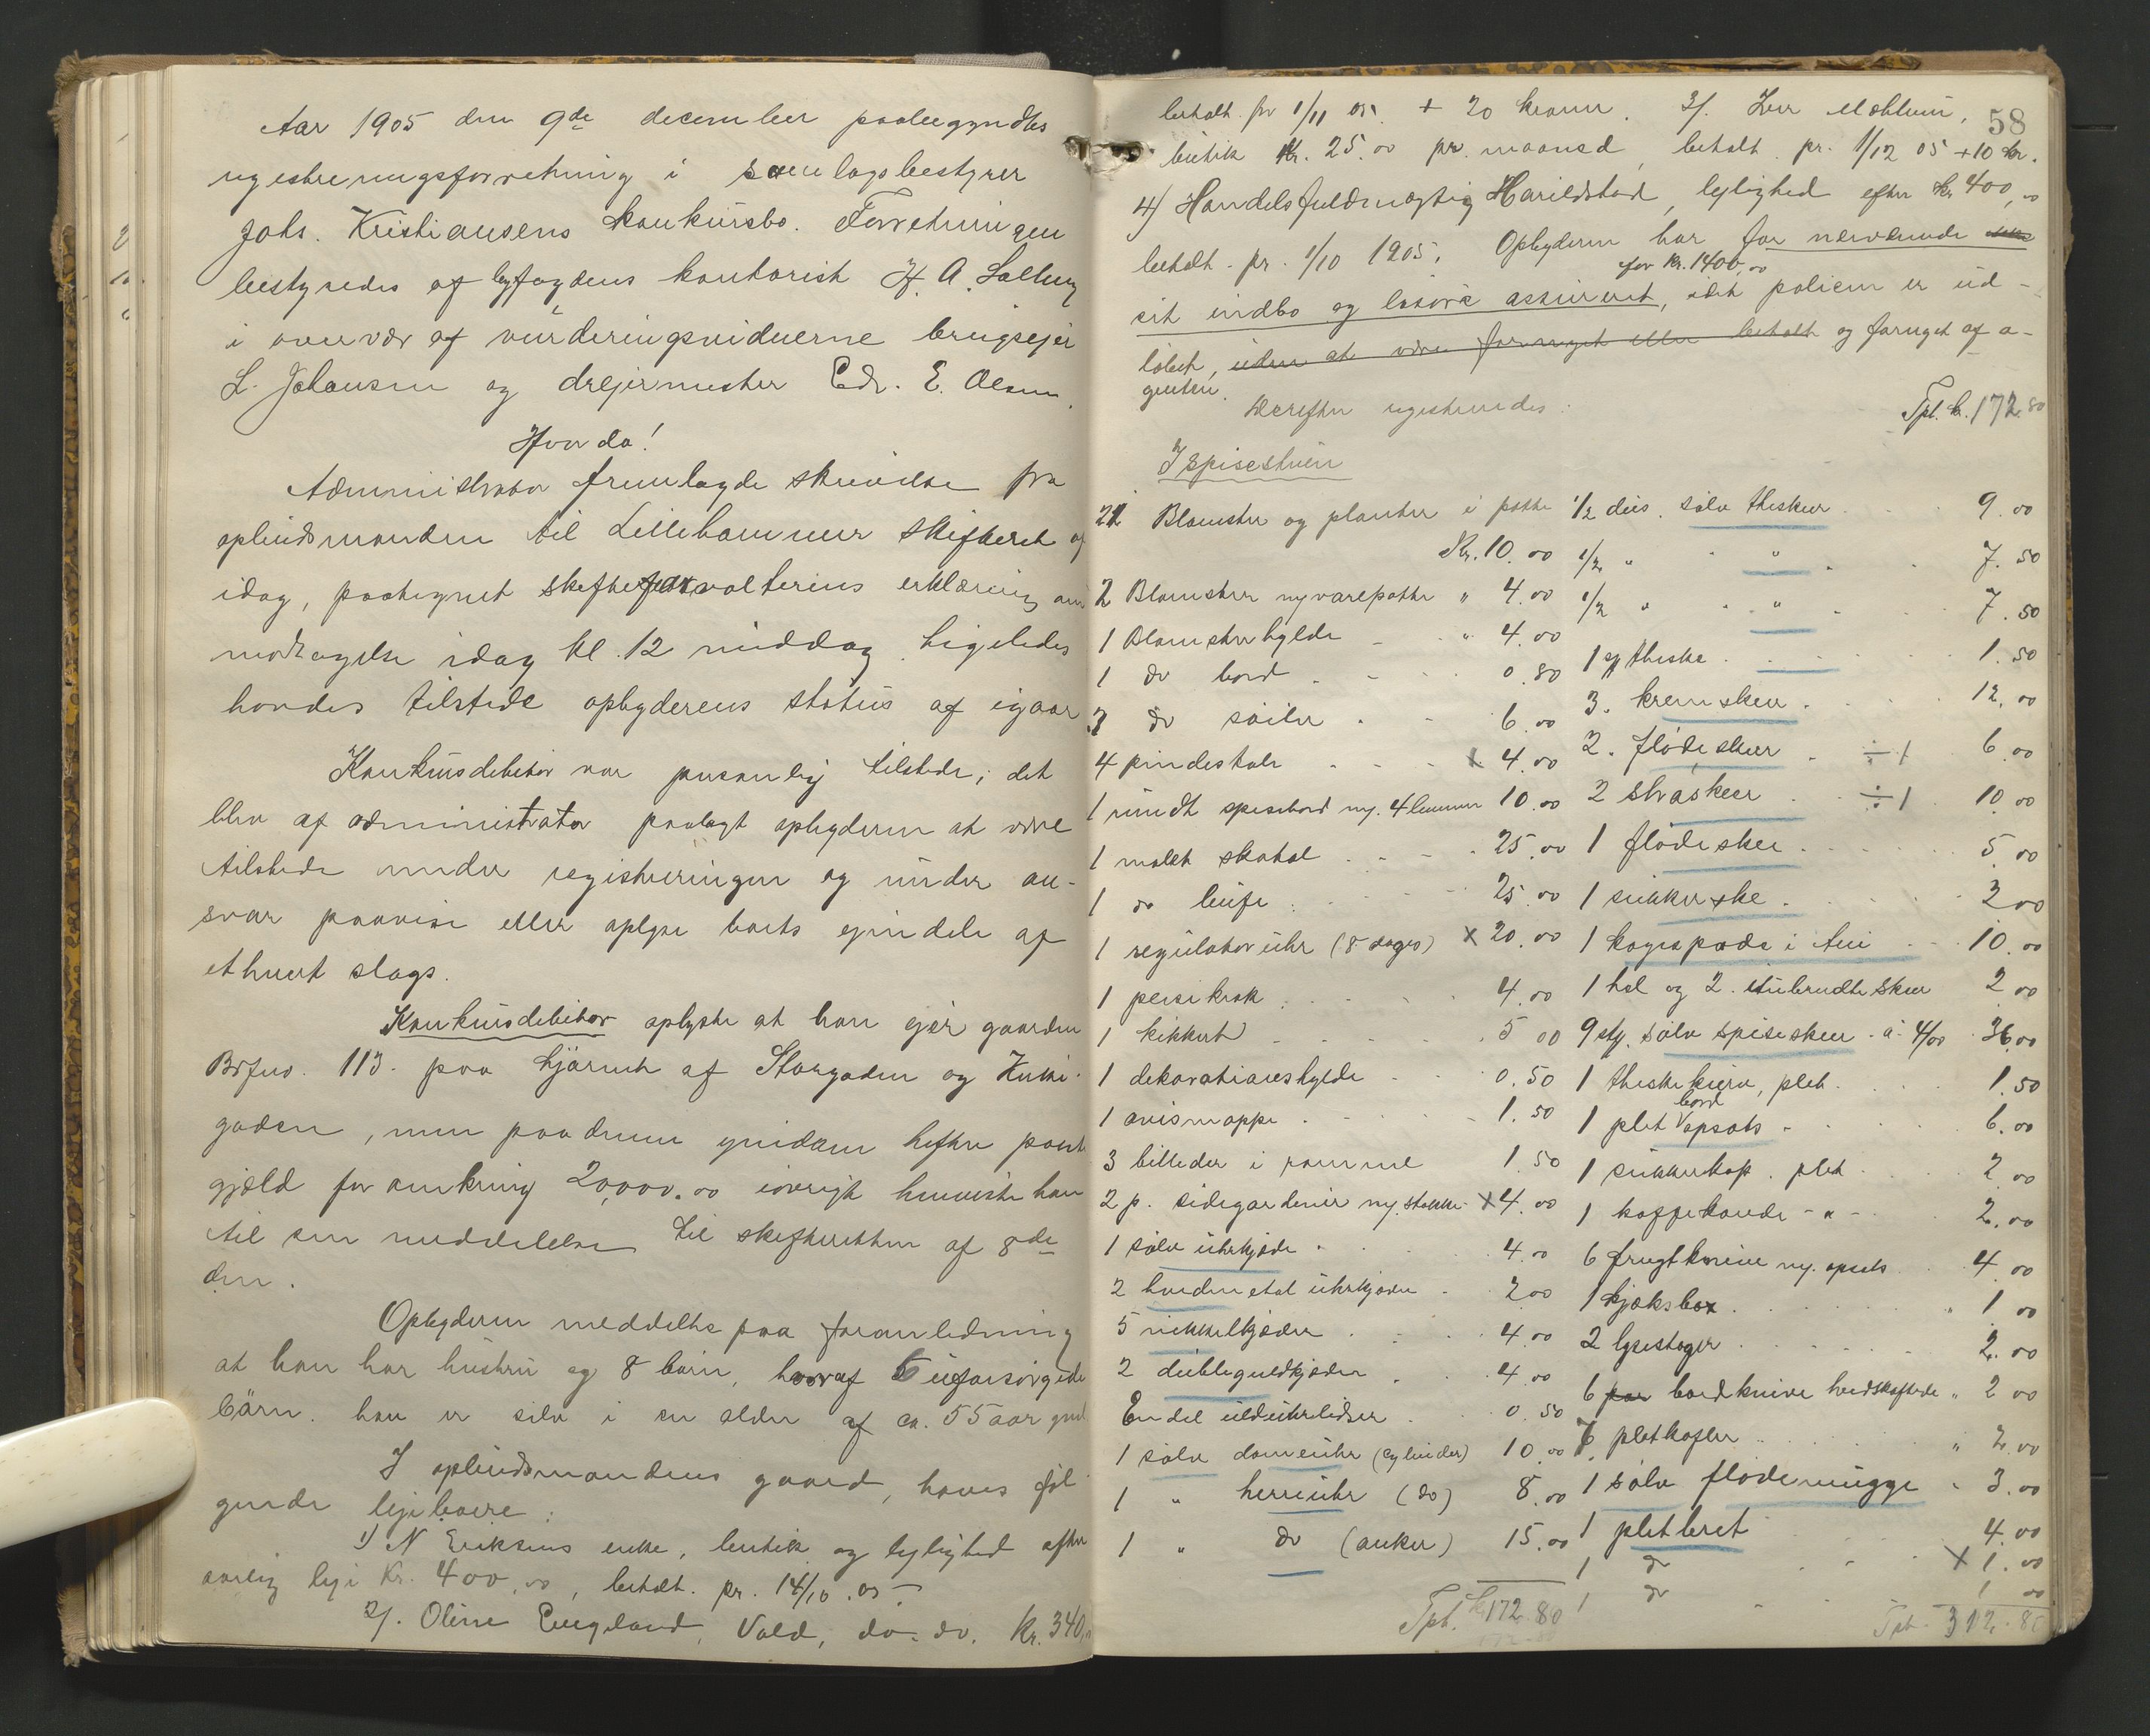 Aar 1905 den 9de december paabegyndtes
registreringsforretning i samlagsbestyrer
Johs. Kristiansens konkursbo. Forretningen
bestyredes af byfogdens kontorist H. A.
i overvær af vurderingsvidnerne brugseier
L. Johansen og dreiermester Edv. E. Olsen.
Hvorda!
Administrator fremlagde skrivelse fra
opbudsmanden til Lillehammer skifteret af
idag, paategnet skifteforvalterens erklæring om
modtagelse idag kl. 12 middag. Ligeledes
havdes tilstede opbyderens status af igaar
Konkursdebitor var personlig tilstede; det
blev af administrator paalagt opbyderen at være
tilstede under registreringen og under an-
svar paavise eller oplyse boets eiendele af
ethvert slags.
Konkursdebitor oplyste at han eier gaarden
Brfno. 113. paa hjørnet af Storgaden og Kirke-
gaden, men paa denne eiendom hefter pante
gjæld for omkring 20,000.00 iøvrigt henviste han
til sin meddelelse til skifteretten af 8de
den.
Opbyderen meddelte paa foranledning
at han har hustru og 8 børn, hvoraf 5 uforsørgede
børn. han er selv i en alder af ca. 55 aar gml
I opbudsmandens gaard, haves føl
gende leieboere:
1) N Eriksens enke, butik og leilighed efter
aarlig leie Kr. 400,00, betalt. pr. 14/10.05.-
2/. Oline Engeland, Vold, do. do. Kr. 340,
58
betalt. for 1/11 05. + 20 kroner. 3/.
butik Kr. 25.00 pr. maaned, betalt. pr. 1/12 05 +10 kr.
4) Handelsfuldmægtig Harildstad, leilighed efter Kr 400,00
betalt. pr. 1/10 1905. Opbyderen har for nærværende
for Kr. 1400,00
sit indbo og løsøre assureret, idet policen er ud-
løbet, uden at være fornyet eller betalt og fornyet af a-
genten.
Derefter registreredes:
Tpt. kr. 172.80
I spisestuen
21 Blomster og planter i potte
Kr. 10.00
2 Blomster m/ varepotte " 4.00
1 Blomsterhylde - " 4.00
1 do bord - 0.80
3 do søiler - 6.00
4 pindestole - x 4.00
1 rundt spisebord m/. 4 lemmer 10.00
1 malet skatol - 25.00
1 do buffe - 25.00
1 regulatoruhr (8 dages) x 20.00
1 peisekrak 4.00
1 kikkert - 5 00
1 dekorationshylde - 0.50
1 avismappe - 1.50
3 billeder i ramme 1.50
2 p. sidegardiner m/. stokke - x 4.00
1 sølv uhrkjede 4.00
2 hvidmetal uhrkjeder 2.00
5 nikkelkjeder 4.00
2 doublеguldkjeder 4.00
En del 0.50
1 sølv dameuhr (cylinder) 10.00
1 " herreuhr (do) 8.00
1 " do (anker) 15.00
Tpt. kr 172.80
1/2 dus. sølv theskeer 9.00
1/2 " " 7.50
1/2 " " 7.50
1 theske 1.50
3. kremskeer 12.00
2. flødeskeer ÷ 1 6.00
2 strøskeer ÷ 1 10.00
1 flødeskee 5.00
1 sukkerske 3 00
1 kagespade i etui 10.00
1 hel og 2. itubrudte skeer 2 00
9 stk. sølv spiseskeer à 4/00 36.00
1 theskekurv, plet 1.50
bord
1 plet opsats - 6.00
1 sukkerkop. plet 2.00
1 kaffekande - " - 2.00
6 frugtknive m/. opsats 4 00
1 kjeksbox 1 00
2 lysestager 2.00
6 par bordknive hvidskaftede " 2 00
6 pletgafler " 2.00
1 sølv flødemugge - 3.00
1 pletbret 4.00
1 do x 1.00
1 do 1 00
Tpt. 312.80